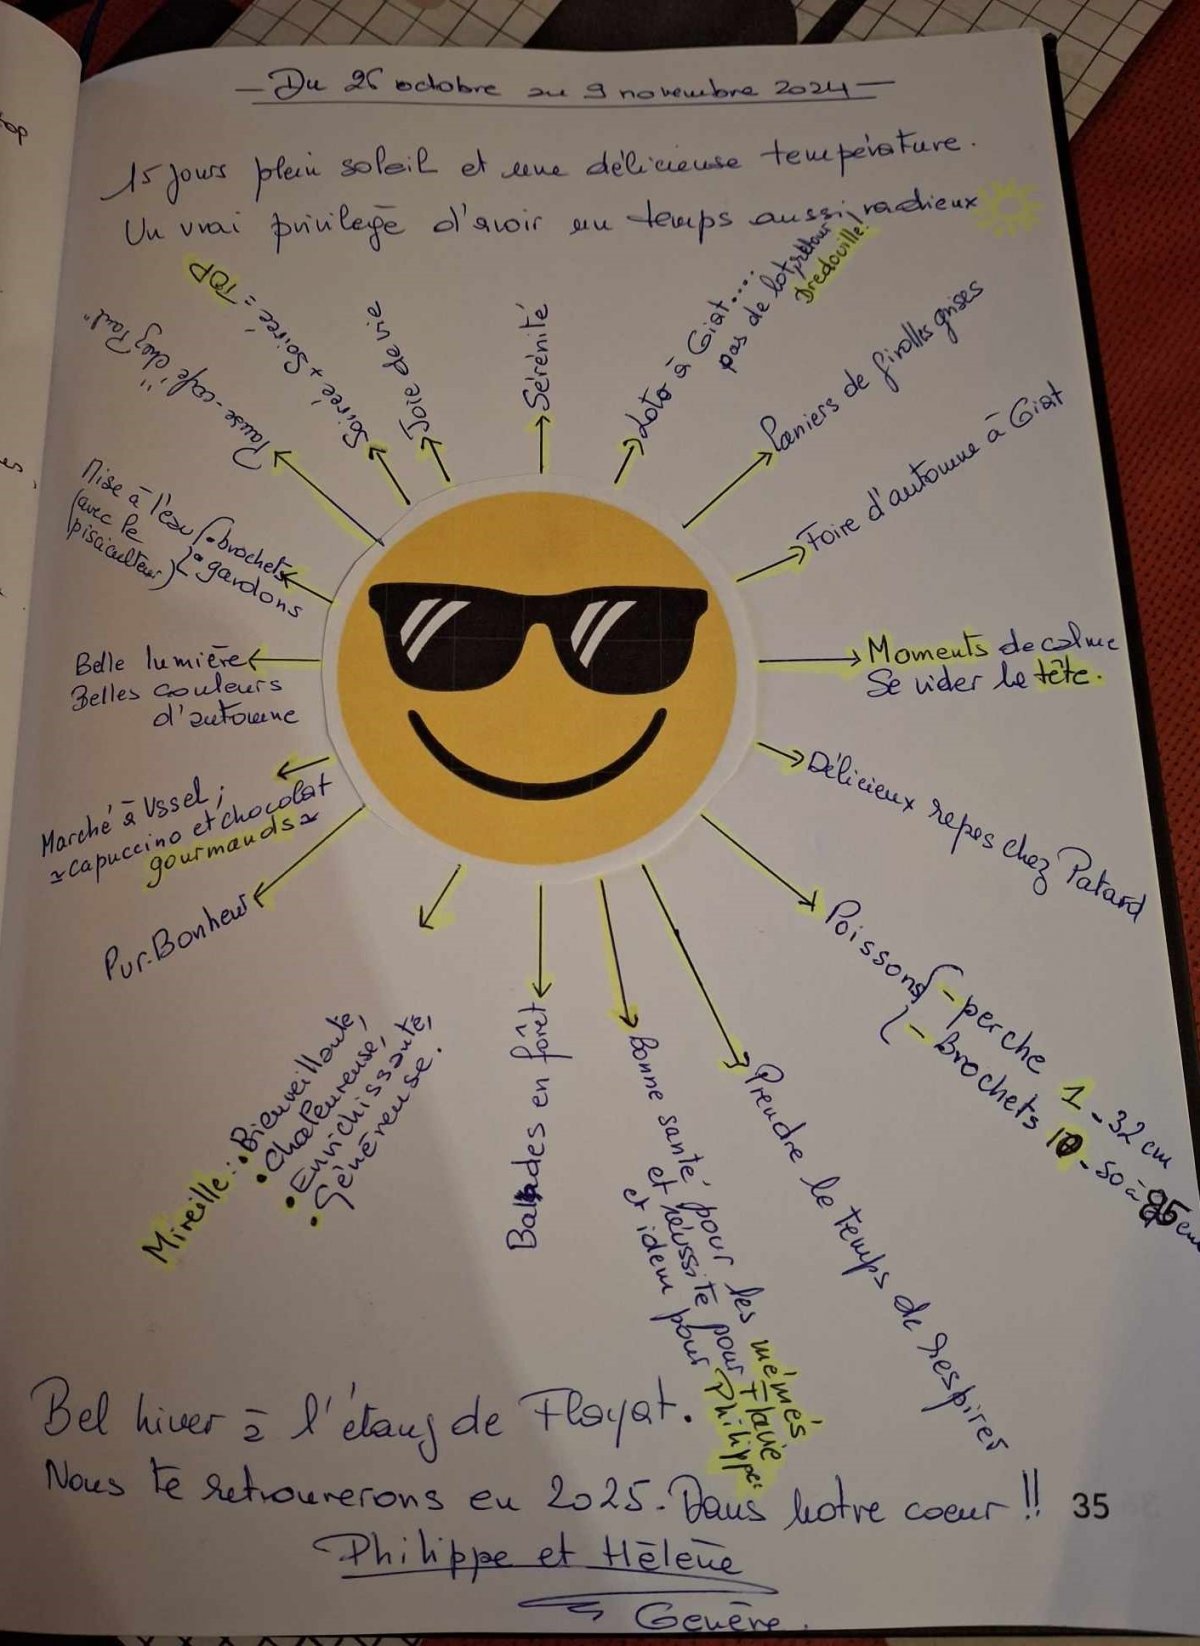 — Du 26 octobre au 9 novembre 2024 —
15 jours plein soleil et une délicieuse température.
Un vrai privilège d'avoir un temps aussi radieux
Sérénité
Loto à Giat....
pas de lot, retour
Bredouille!
Paniers de girolles grises
Foire d'automne à Giat
Moments de calme
Se vider la tête.
Délicieux repas chez Patard
Poissons
- perche 1 - 32 cm
- Brochets 10 - 50 à 85 cm
Prendre le temps de respirer
Bonne santé pour les mémés
et réussite pour Flavie
et idem pour Philippe
Balades en forêt
Mireille :
• Bienveillante,
• Chaleureuse,
• Enrichissante,
• Généreuse.
Pur-Bonheur
Marché à Ussel ;
~ capuccino et chocolat
gourmands ~
Belle lumière
Belles couleurs
d'automne
Mise à l'eau
(avec le
pisciculteur)
• brochets
• gardons
Pause-café "chez Paul"
Soirée + Soirée = TOP
Joie de vie
Bel hiver à l'étang de Flayat.
Nous te retrouverons en 2025. Dans notre coeur !!
35
Philippe et Hélène
Genève.